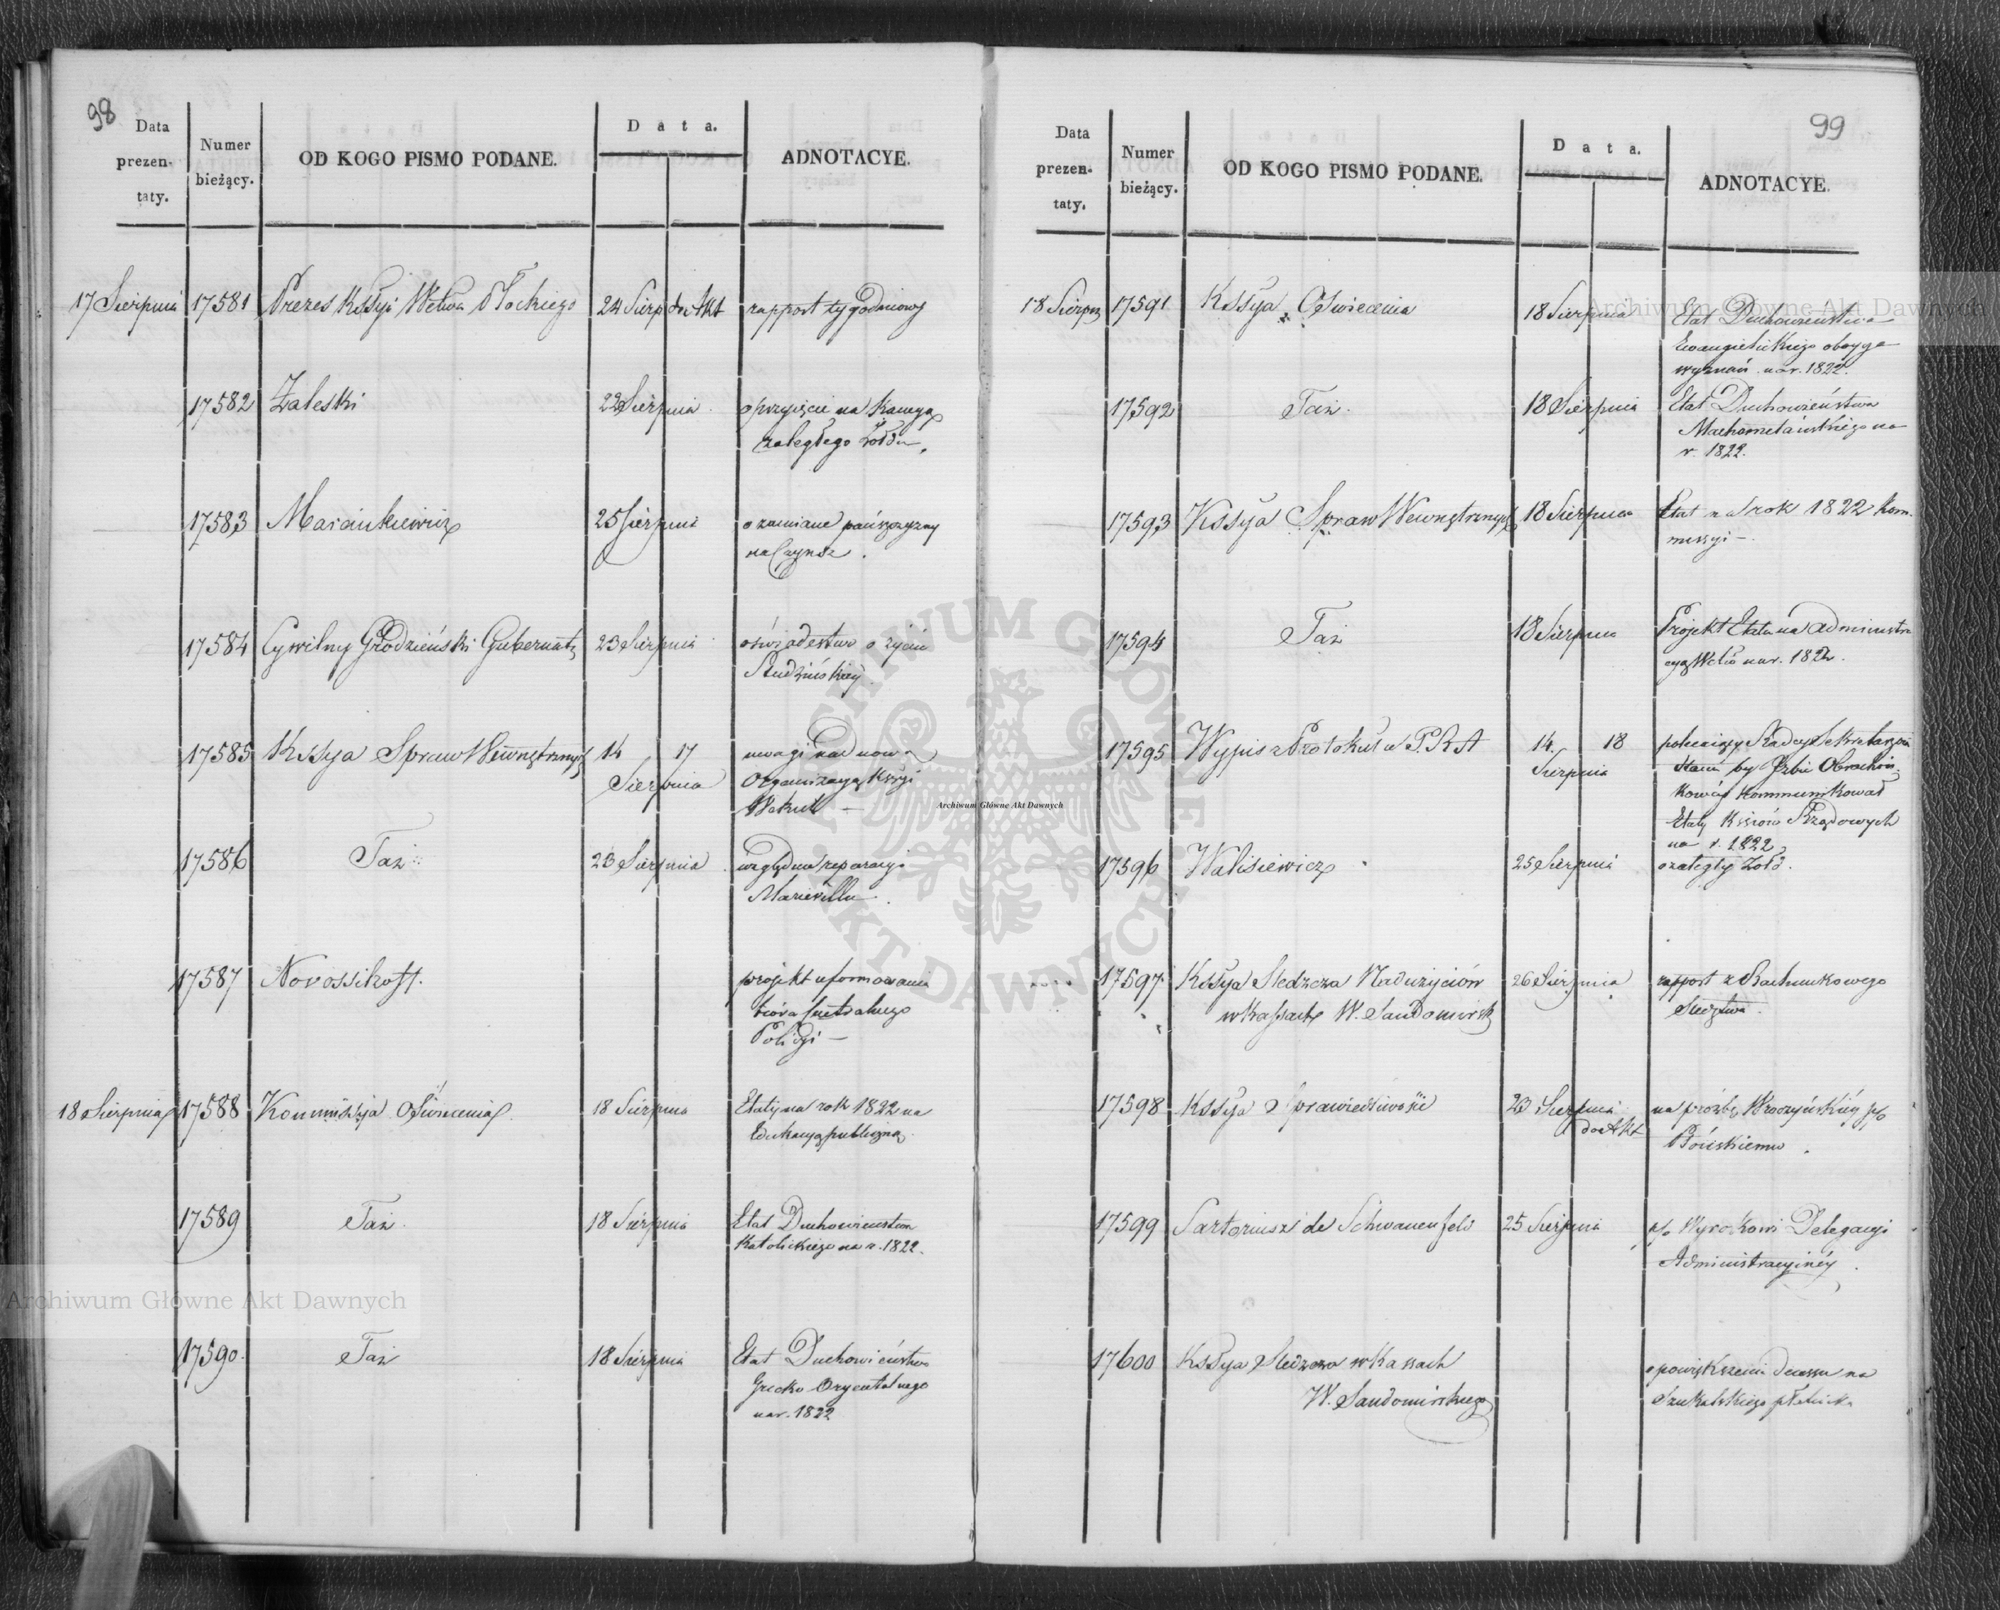 98
Data prezen-taty.
Numer bieżący.
OD KOGO PISMO PODANE.
Data.
ADNOTACYE.
17 Sierpnia 17581 Prezes Kssyi Wctwa Płockiego 24 Sierp do Akt rapport tygodniowy
17582 Zaleski 22 Sierpnia
zaległego żołdu.
17583 25 Sierpnia o zamianę pańszczyzny
na Czynsz.
17584 Cywilny Grodzieński Gubernat 23 Sierpnia o świadectwo o życiu
Studzińskiey
17585 Kssya Spraw Wewnętrznych 14 17 uwagi nad nową
Sierpnia Organizacyą Kssyi
17586 Taż 23 Sierpnia względem reparacyi
Marievillu.
17587 Novossiltzoff. projekt uformowania
bióra Centralnego
Policyi —
18 Sierpnia 17588 Kommissya Oświecenia 18 Sierpnia Etaty na rok 1822 na
Edukacyą publiczną.
17589 Taż. 18 Sierpnia Etat Duchowieństwa
Katolickiego na r. 1822.
17590. Taż 18 Sierpnia Etat Duchowieństwa
Grecko Oryentalnego
na r. 1822
99
Data prezen-taty.
Numer bieżący.
OD KOGO PISMO PODANE.
Data.
ADNOTACYE.
18 Sierpn 17591 Kssya Oświecenia 18 Sierpnia Etat Duchowieństwa
Ewangielickiego oboyga
wyznań na r. 1822.
17592 Taż. 18 Sierpnia Etat Duchowieństwa
Machometańskiego na
r. 1822.
17593 Kssya Spraw Wewnętrznych 18 Sierpnia Etat na rok 1822 Kom-
missyi —
17594 Taż 18 Sierpnia Projekt Etatu na administra
cyą Wctw na r. 1822.
17595 Wypis z Protokułu P. R A 14. 18
Sierpnia
Kowey kommunikował
Etaty Kssiów Rządowych
na r. 1822
17596 Walisiewicz 25 Sierpnia o zaległy żołd.
17597 Kssya Sledzcza Nadużyciów 26 Sierpnia rapport z Rachunkowego
w Kassach W. Sandomirsk Sledztwa.
17598 Kssya Sprawiedliwości 23 Sierpnia na prośbę
do Akt
17599 Sartoriusz de Schwanenfeld 25 Sierpnia p/o Wyrokowi Delegacyi
Administracyiney.
17600 Kssya Sledzcza w Kassach o powiększenie na
W. Sandomirskiego Szukalskiego płatnika
Archiwum Główne Akt Dawnych
Archiwum Główne Akt Dawnych
Archiwum Główne Akt Dawnych
ARCHIWUM GŁÓWNE AKT DAWNYCH